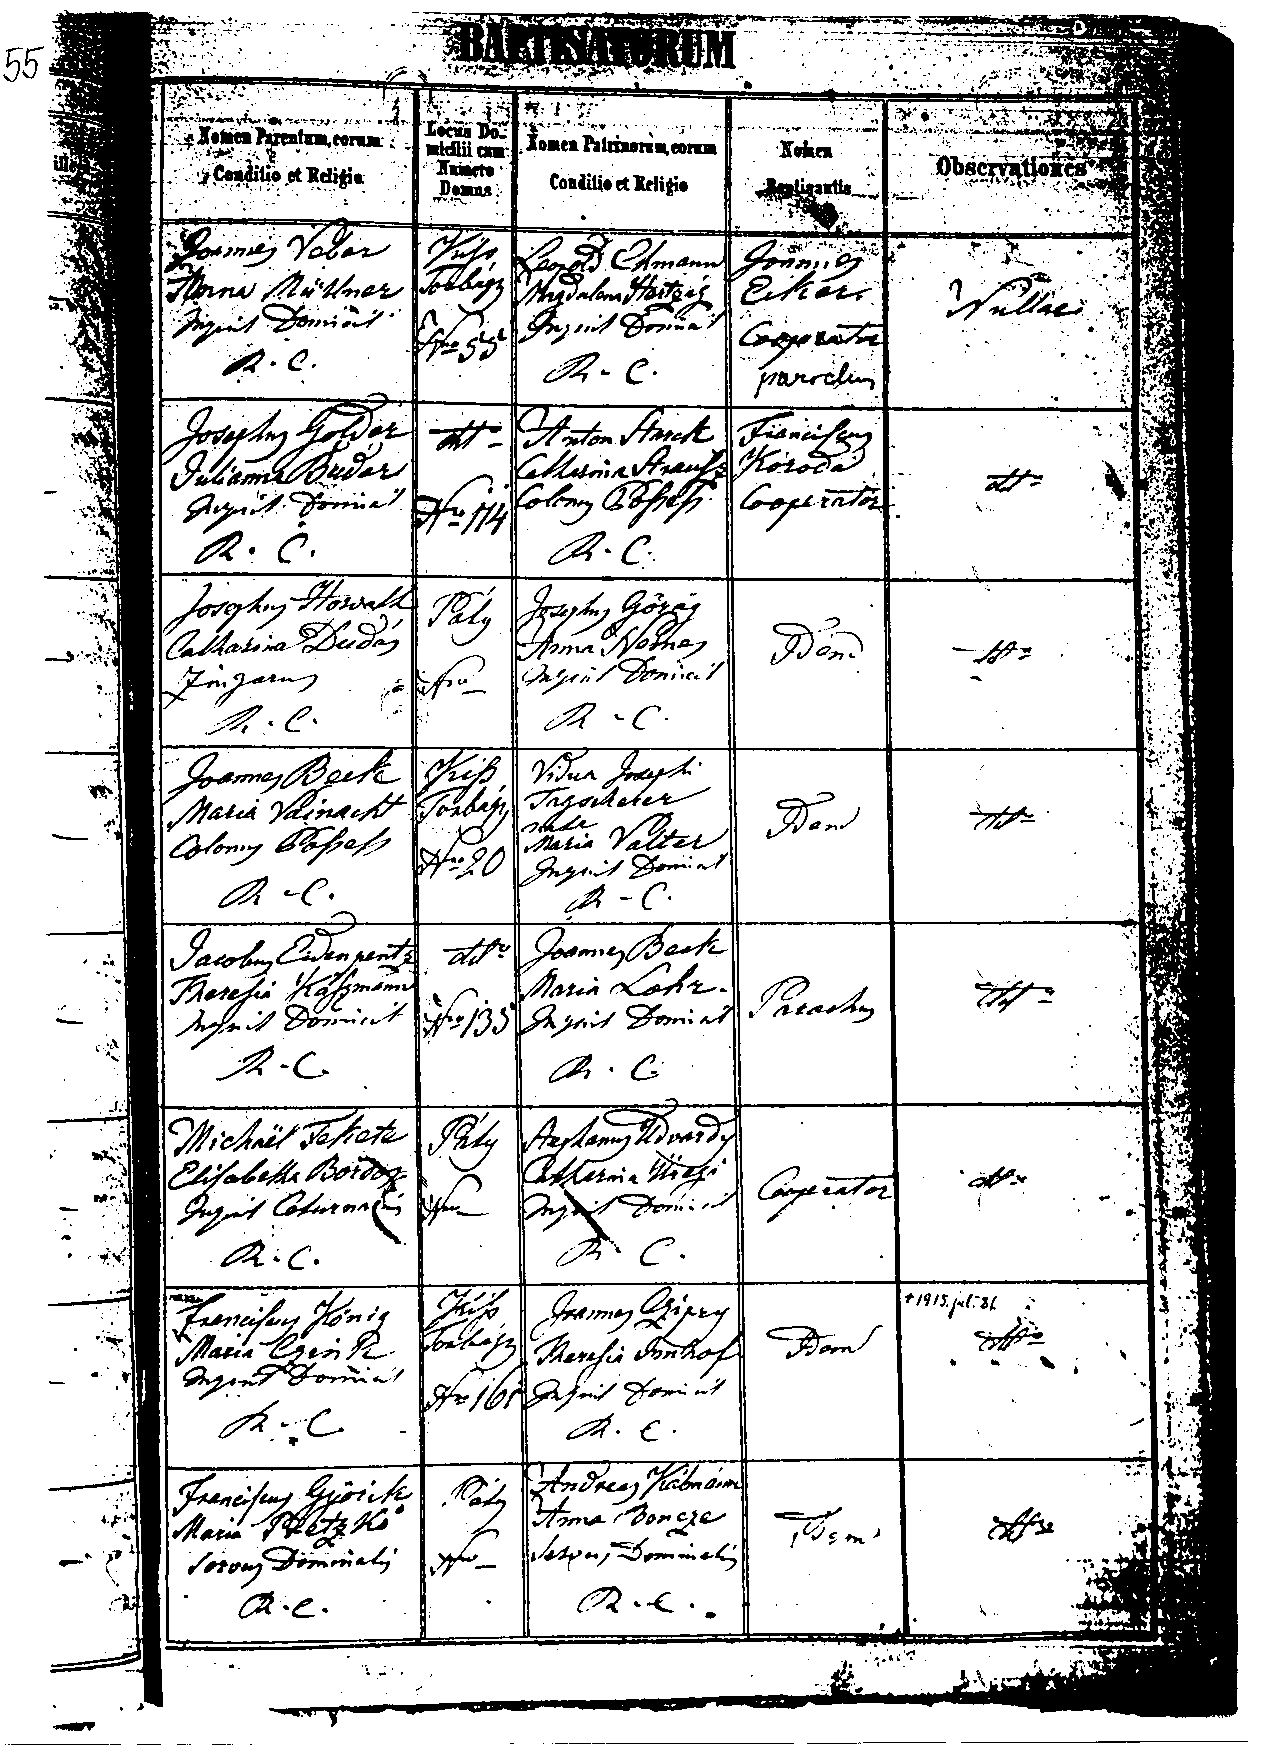 55
BAPTISATORUM
Nomen Parentum, eorum
Conditio et Religio
Locus Do-
micilii cum
Numero
Domus
Nomen Patrinorum, eorum
Conditio et Religio
Nomen
Baptisantis
Observationes
Joannes Veber
Anna
Inquil Domicil
R. C.
Kiss
Torbágy
Nro 55
Leopold Ehmann
Magdalena Hertzog
Inquil Domicil
R. C.
Joannes
Ecker
Cooperator
parochus
Nullae
Josephus Golder
Julianna Buder
Inquil Domicil
R. C.
dtto
Nro 114
Anton Starck
Catharina Strausz
Colonus Possess
R. C.
Franciscus
Koroda
Cooperator
dtto
Josephus Horvath
Catharina Dudás
Zingarus
R. C.
Páty
Nro —
Josephus Görög
Anna Nemes
Inquil Domicil
R. C.
Idem
dtto
Joannes Beck
Maria Vainacht
Colonus Possess
R. C.
Kiss
Torbágy
Nro 20
Vidua Josephi
Maria Valter
Inquil Domicil
R. C.
Idem
dtto
Jacobus Eidenpentz
Theresia Kaszmann
Inquil Domicil
R. C.
dtto
Nro 135
Joannes Beck
Maria Lohr
Inquil Domicil
R. C.
Parochus
dtto
Michaël Fekete
Elisabetha Bordos
Inquil
R. C.
Páty
Nro —
Stephanus Udvardy
Catharina
Inquil Domicil
R. C.
Cooperator
dtto
Franciscus König
Maria Czink
Inquil Domicil
R. C.
Kiss
Torbágy
Nro 161
Joannes Czipry
Theresia Imhof
Inquil Domicil
R. C.
Idem
† 1915. jul. 31.
dtto
Franciscus Györik
Maria Pletzkó
Servus Dominalis
R. C.
Páty
Nro —
Andreas Kálmán
Anna Boncze
Servus Dominalis
R. C.
Idem
dtto